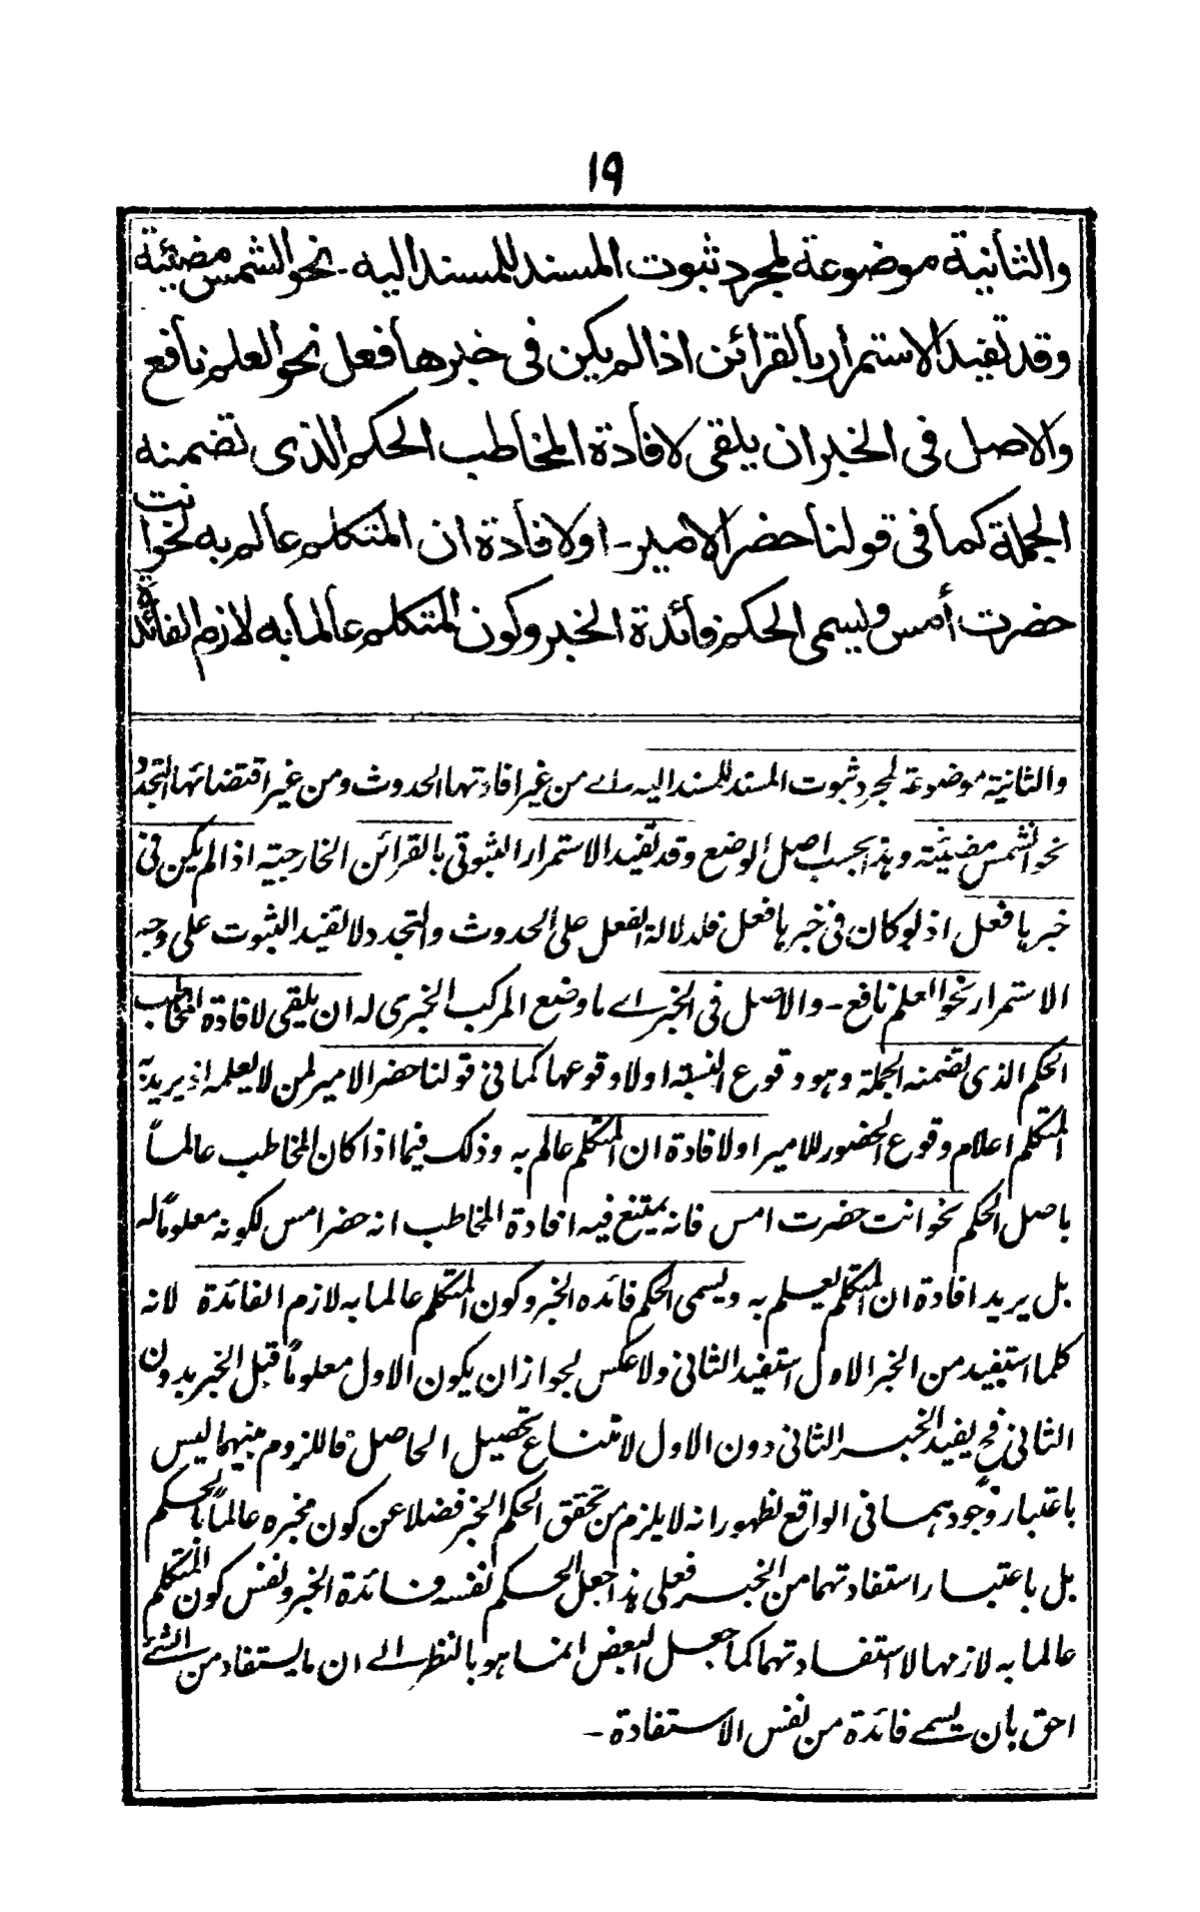 ١٩
والثانية موضوعة لمجرد ثبوت المسند للمسند اليه - نحو الشمس مضيئة
وقد تفيد الاستمرار بالقرائن اذا لم يكن فى خبرها فعل نحو العلم نافع
والاصل فى الخبر ان يلقى لافادة المخاطب الحكم الذى تضمنه
الجملة كما فى قولنا حضر الامير - او لافادة ان المتكلم عالم به نحو انت
حضرت أمس ويسمى الحكم فائدة الخبر وكون المتكلم عالما به لازم الفائدة
والثانية موضوعة لمجرد ثبوت المسند للمسند اليه اے من غير افادتها الحدوث ومن غير اقتضائها التجدد
نحو الشمس مضيئة وهذا بحسب اصل الوضع وقد تفيد الاستمرار الثبوتى بالقرائن الخارجية اذا لم يكن فى
خبرها فعل اذ لو كان فى خبرها فعل فلدلالة الفعل على الحدوث والتجدد لا تفيد الثبوت على وجه
الاستمرار نحو العلم نافع - والاصل فى الخبر اے ما وضع المركب الخبرى له ان يلقى لافادة المخاطب
الحكم الذى تضمنه الجملة وهو وقوع النسبة او لا وقوعها كما فى قولنا حضر الامير لمن لا يعلمه اذ يريد به
المتكلم اعلام وقوع الحضور للامير او لافادة ان المتكلم عالم به وذلك فيما اذا كان المخاطب عالماً
باصل الحكم نحو انت حضرت امس فانه يمتنع فيه افادة المخاطب انه حضر امس لكونه معلوماً له
بل يريد افادة ان المتكلم يعلم به ويسمى الحكم فائده الخبر وكون المتكلم عالما به لازم الفائدة لانه
كلما استفيد من الخبر الاول استفيد الثانى ولا عكس لجواز ان يكون الاول معلوماً قبل الخبر بدون
الثانى فح يفيد الخبر الثانى دون الاول لامتناع تحصيل الحاصل فاللزوم بينهما ليس
باعتبار وجودهما فى الواقع لظهور انه لا يلزم من تحقق الحكم الخبر فضلا عن كون مخبره عالماً بالحكم
بل باعتبار استفادتهما من الخبر فعلى هذا جعل الحكم نفسه فائدة الخبر ونفس كون المتكلم
عالما به لازمها لا استفادتهما كما جعل البعض انما هو بالنظر الے ان ما يستفاد من الشئ
احق بان يسمے فائدة من نفس الاستفادة -